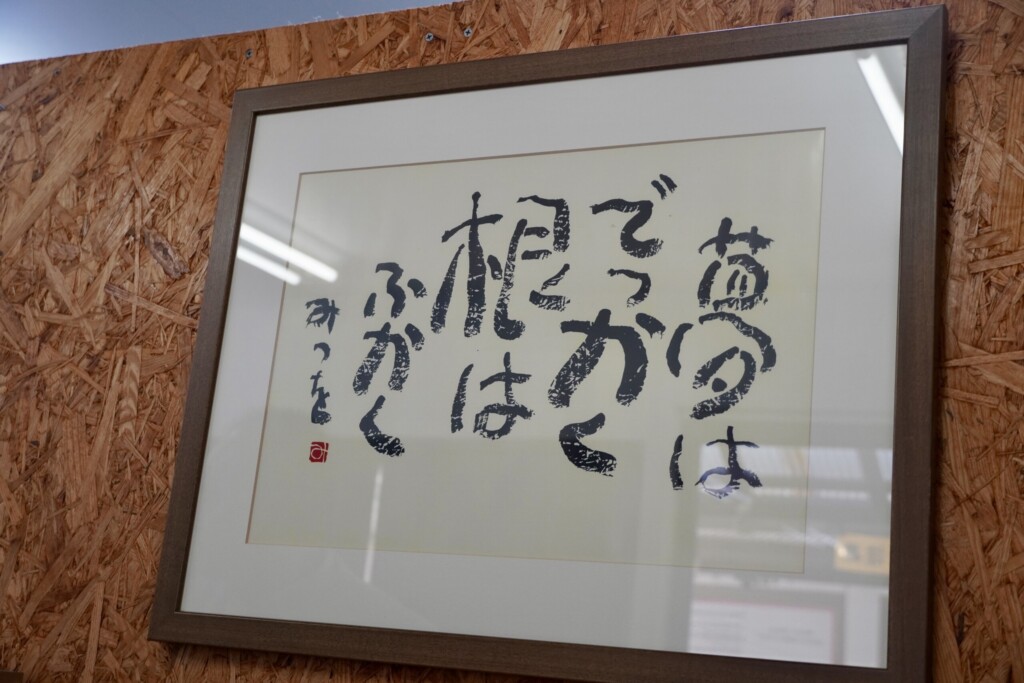 夢は
でっかく
根は
ふかく
みつを
み